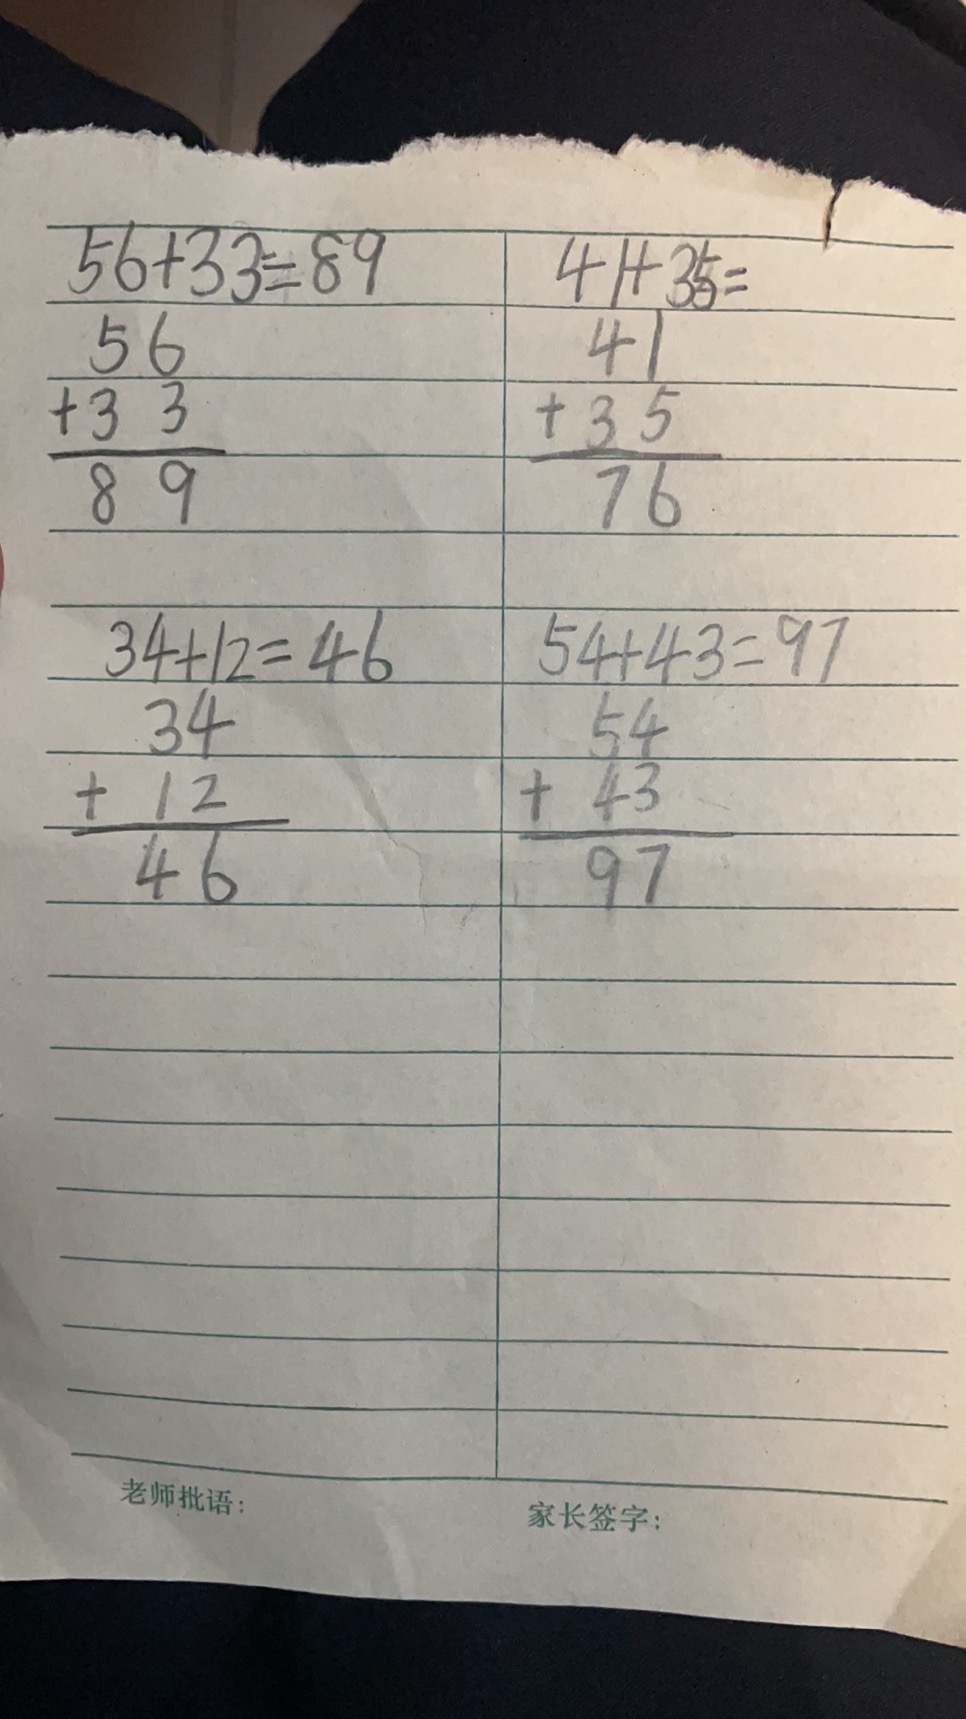 56+33=89
56
+33
89
41+35=
41
+35
76
34+12=46
34
+12
46
54+43=97
54
+43
97
老师批语：
家长签字：